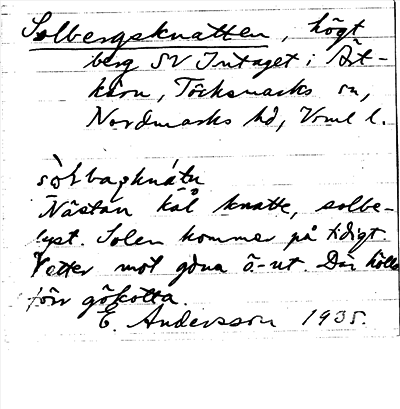 Solbergsknatten, högt
berg SV Intaget i Årt-
kärn, Töcksmarks sn,
Nordmarks hd, Vrml l.
sòlbaʒknátn
Nästan kal knatte, solbe-
lyst. Solen kommer på tidigt
Vetter mot göna ö-ut. Där hölls
förr gökotta.
E. Andersson 1935.